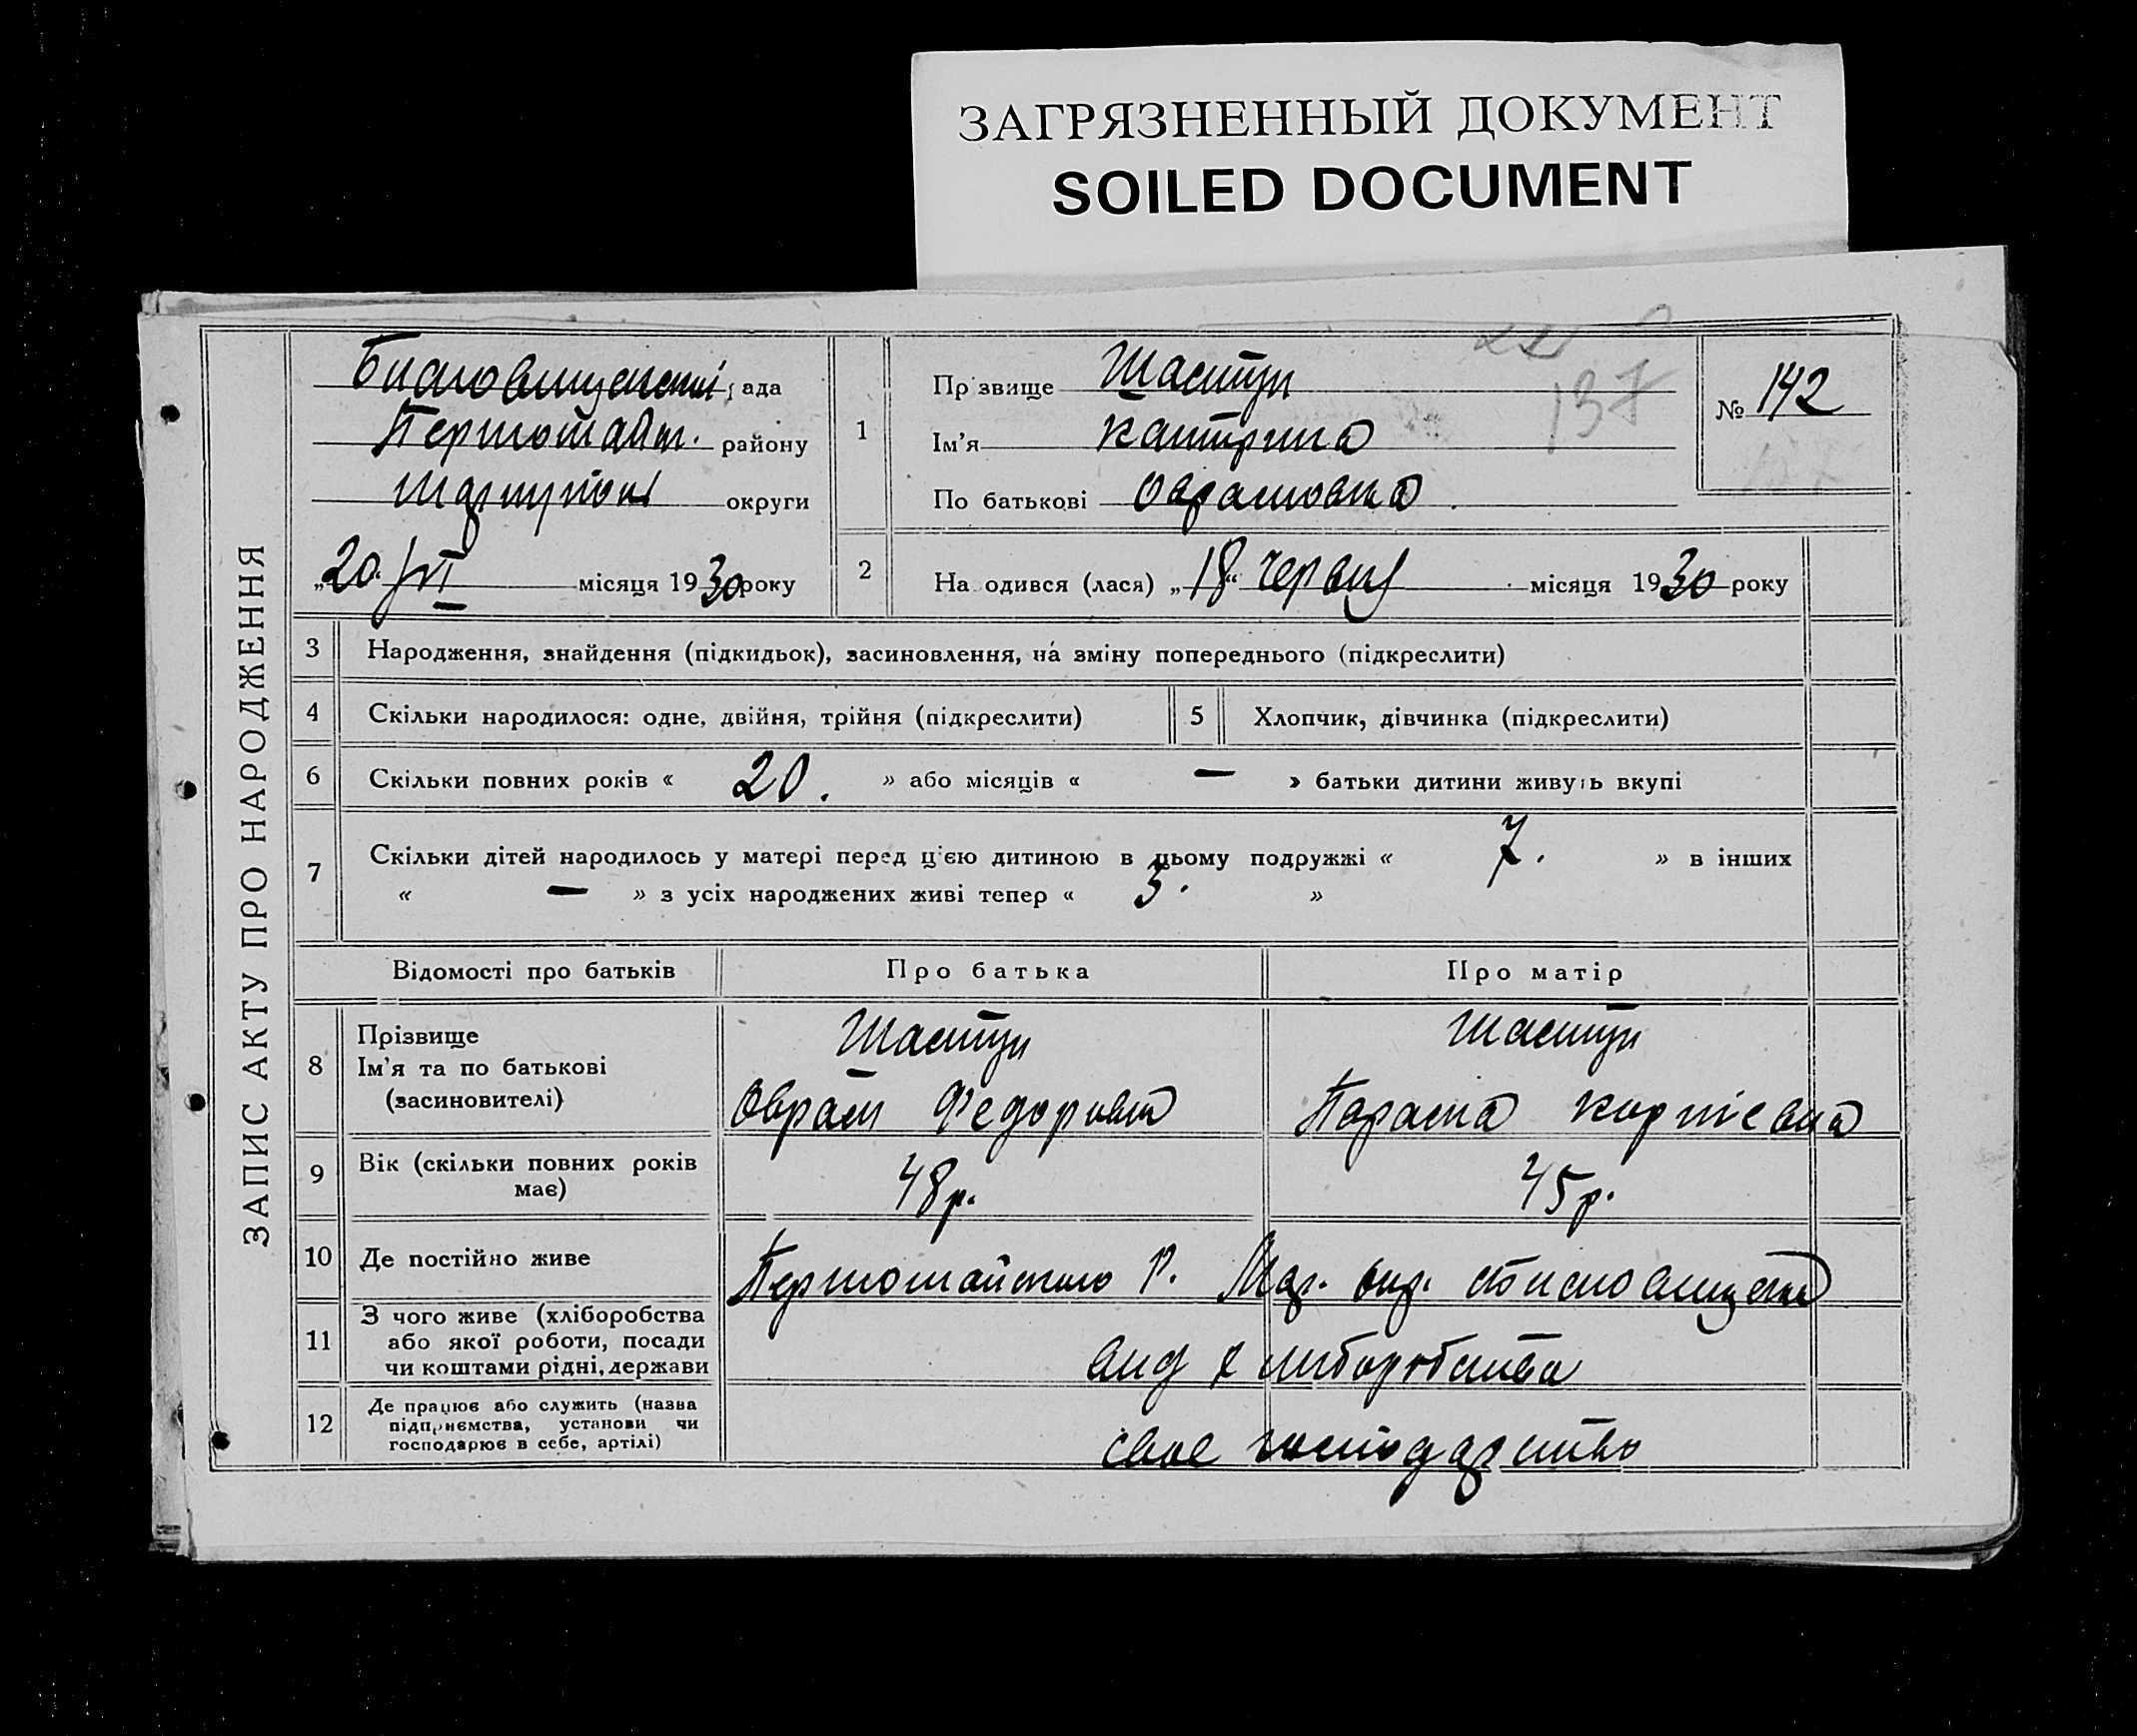 ЗАГРЯЗНЕННЫЙ ДОКУМЕНТ
SOILED DOCUMENT
ЗАПИС АКТУ ПРО НАРОДЖЕННЯ
ада
району
округи
„20“ VI місяця 1930 року
1
Пр звище Шастун
Ім'я Катирина
По батькові Оврамовна
137
№ 142
2
На одився (лася) „18“ Червня місяця 1930 року
3 Народження, знайдення (підкидьок), засиновлення, на зміну попереднього (підкреслити)
4 Скільки народилося: одне, двійня, трійня (підкреслити)
5 Хлопчик, дівчинка (підкреслити)
6 Скільки повних років « 20. » або місяців « — » батьки дитини живуть вкупі
7 Скільки дітей народилось у матері перед цією дитиною в цьому подружжі « 7. » в інших
« — » з усіх народжених живі тепер « 3. »
Відомості про батьків Про батька Про матір
8 Прізвище
Ім'я та по батькові
(засиновителі)
Шастун
Оврам Федоров
Шастун
Параска Корніевна
9 Вік (скільки повних років
має)
48 р. 45 р.
10 Де постійно живе
Першомайського Р. Мар. окр.
11 З чого живе (хліборобства
або якої роботи, посади
чи коштами рідні, держави
вид хлиборобства
12 Де працює або служить (назва
підприємства, установи чи
господарює в себе, артілі)
свое господарство